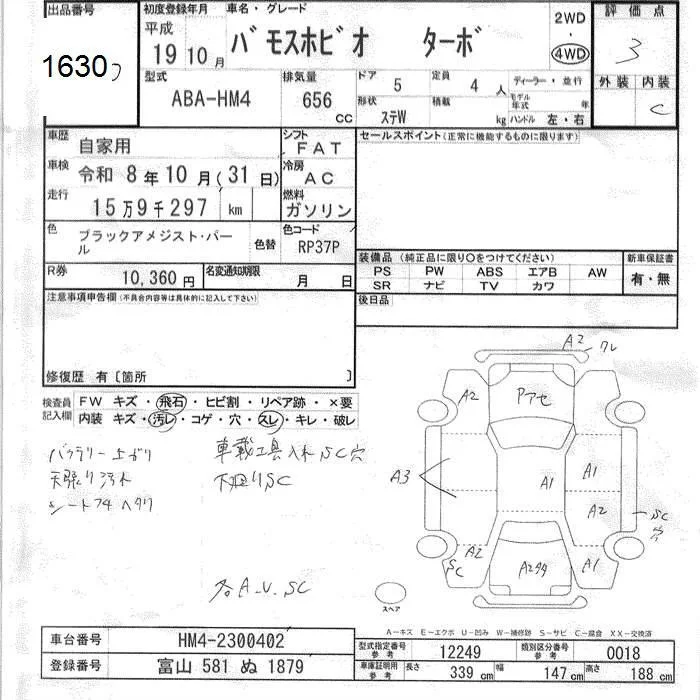 出品番号
1630
初度登録年月
平成
19 10 月
車名・グレード
バモスホビオ ターボ
2WD
・
4WD
評価点
3
外装 内装
C
型式
ABA-HM4
排気量
656
CC
ドア
5
定員
4 人
ディーラー・並行
形状
ステW
積載
kg
モデル年式
年
ハンドル 左・右
車歴
自家用
シフト
FAT
セールスポイント(正常に機能するものに限ります)
車検
令和 8 年 10 月 (31 日)
冷房
AC
走行
15万9千297 km
燃料
ガソリン
色
ブラックアメジスト・パール
色替
色コード
RP37P
装備品 (純正品に限り○をつけてください)
PS PW ABS エアB AW
SR ナビ TV カワ
新車保証書
有・無
R券
10,360 円
名変通知期限
月 日
後日品
注意事項申告欄 (不具合内容等は具体的に記入して下さい)
修復歴 有 〔箇所 〕
検査員記入欄
FW キズ・飛石・ヒビ割・リペア跡・×要
内装 キズ・汚レ・コゲ・穴・スレ・キレ・破レ
バッテリー上がり
天張り汚れ
シート74ヘタリ
車載工具入れSC穴
下廻りSC
各A-U.SC
A2 ワレ
A2
Pアセ
A3
A1
A1
A2
SC穴
A2
SC
A2
A1
スペア
A-キズ E-エクボ U-凹み W-補修跡 S-サビ C-腐食 XX-交換済
車台番号
HM4-2300402
登録番号
富山 581 ぬ 1879
型式指定番号
参考
12249
類別区分番号
参考
0018
車庫証明用
参考
長さ
339 cm
幅
147 cm
高さ
188 cm